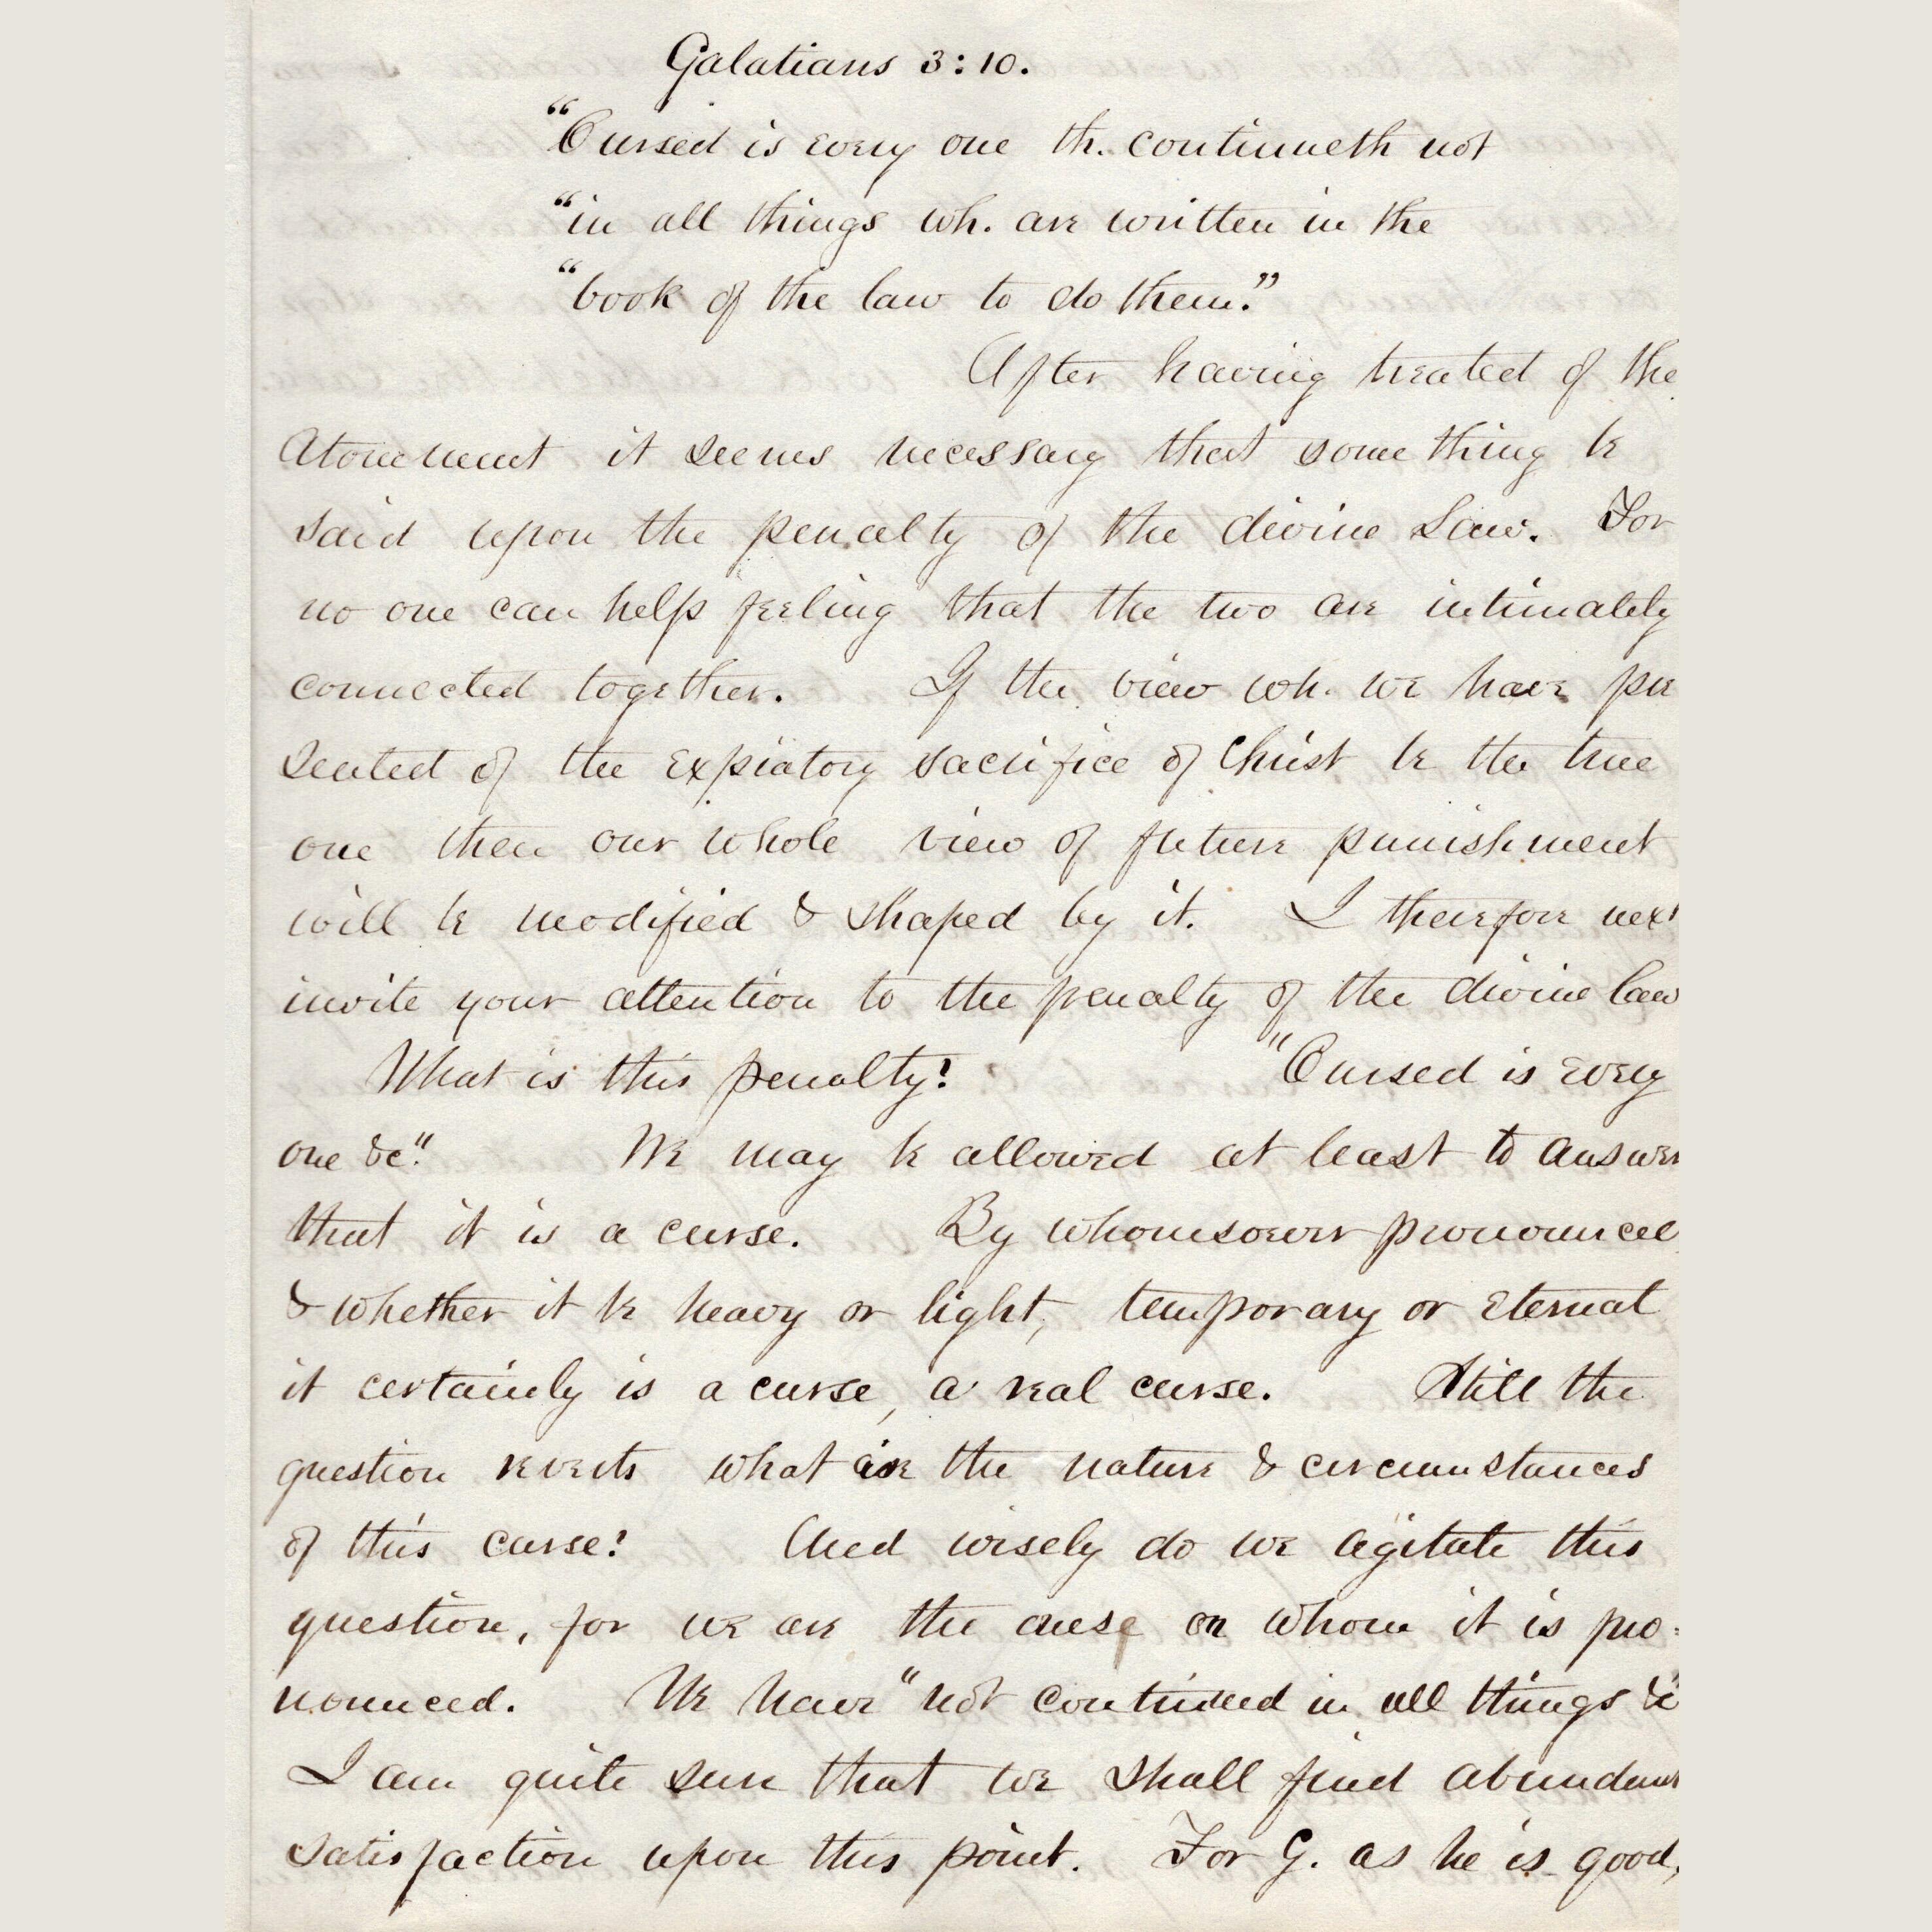 Galatians 3:10.
"Cursed is every one th. continueth not
"in all things wh. are written in the
"book of the law to do them."
After having treated of the
Atonement it seems necessary that something be
said upon the penalty of the divine Law. For
no one can help feeling that the two are intimately
connected together. If the view wh. we have pre
sented of the expiatory sacrifice of Christ be the true
one then our whole view of future punishment
will be modified & shaped by it. I therefore next
invite your attention to the penalty of the divine law
What is this penalty? "Cursed is every
one &c." We may be allowed at least to answer
that it is a curse. By whomsoever pronounced
& whether it be heavy or light, temporary or eternal
it certainly is a curse, a real curse. Still the
question reverts what are the nature & circumstances
of this curse? And wisely do we agitate this
question, for we are the ones on whom it is pro=
nounced. We have "not continued in all things &c
I am quite sure that we shall find abundant
satisfaction upon this point. For G. as he is good,